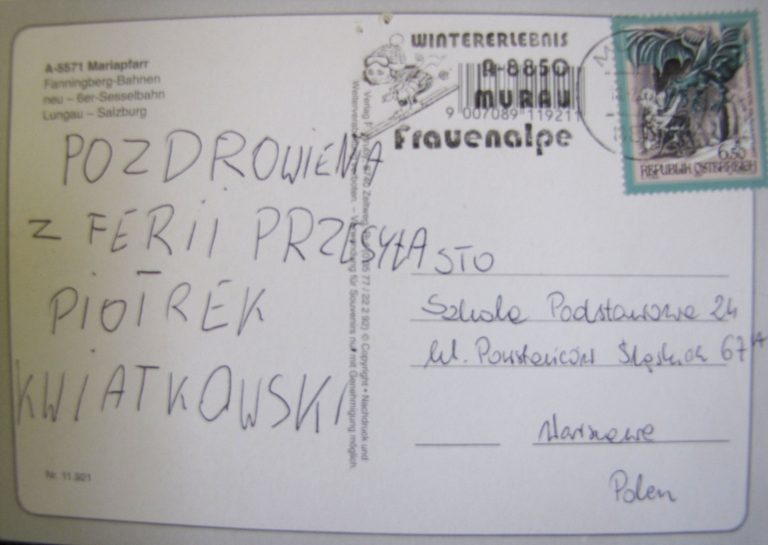 A-5571 Mariapfarr
Fanningberg-Bahnen
neu – 6er-Sesselbahn
Lungau – Salzburg
POZDROWIENIA
Z FERII PRZESYŁA
PIOTREK
KWIATKOWSKI
Nr. 11.921
WINTERERLEBNIS
A-8850
MURAU
9 007089 119211
Frauenalpe
6.50
REPUBLIK ÖSTERREICH
STO
Szkoła Podstawowa 24
Ul. Powstańców Śląskich 67A
Warszawa
Polen
© Copyright • Nachdruck und
Verwendung für Souvenirs nur mit Genehmigung möglich.